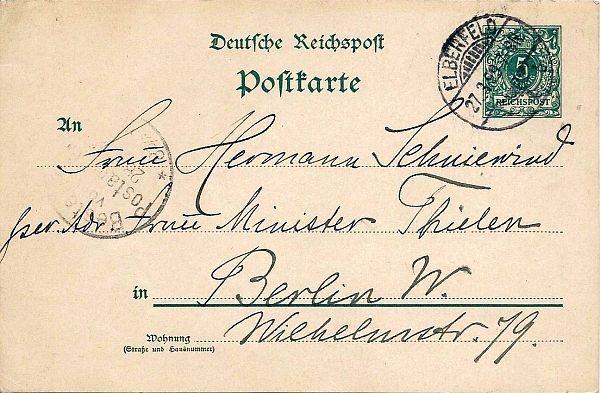 Deutsche Reichspost
Postkarte
ELBERFELD
5
REICHSPOST
An
Frau Hermann Schniewind
per Adr. Frau Minister Thielen
in Berlin W.
Wilhelmstr. 79.
Wohnung
(Straße und Hausnummer)